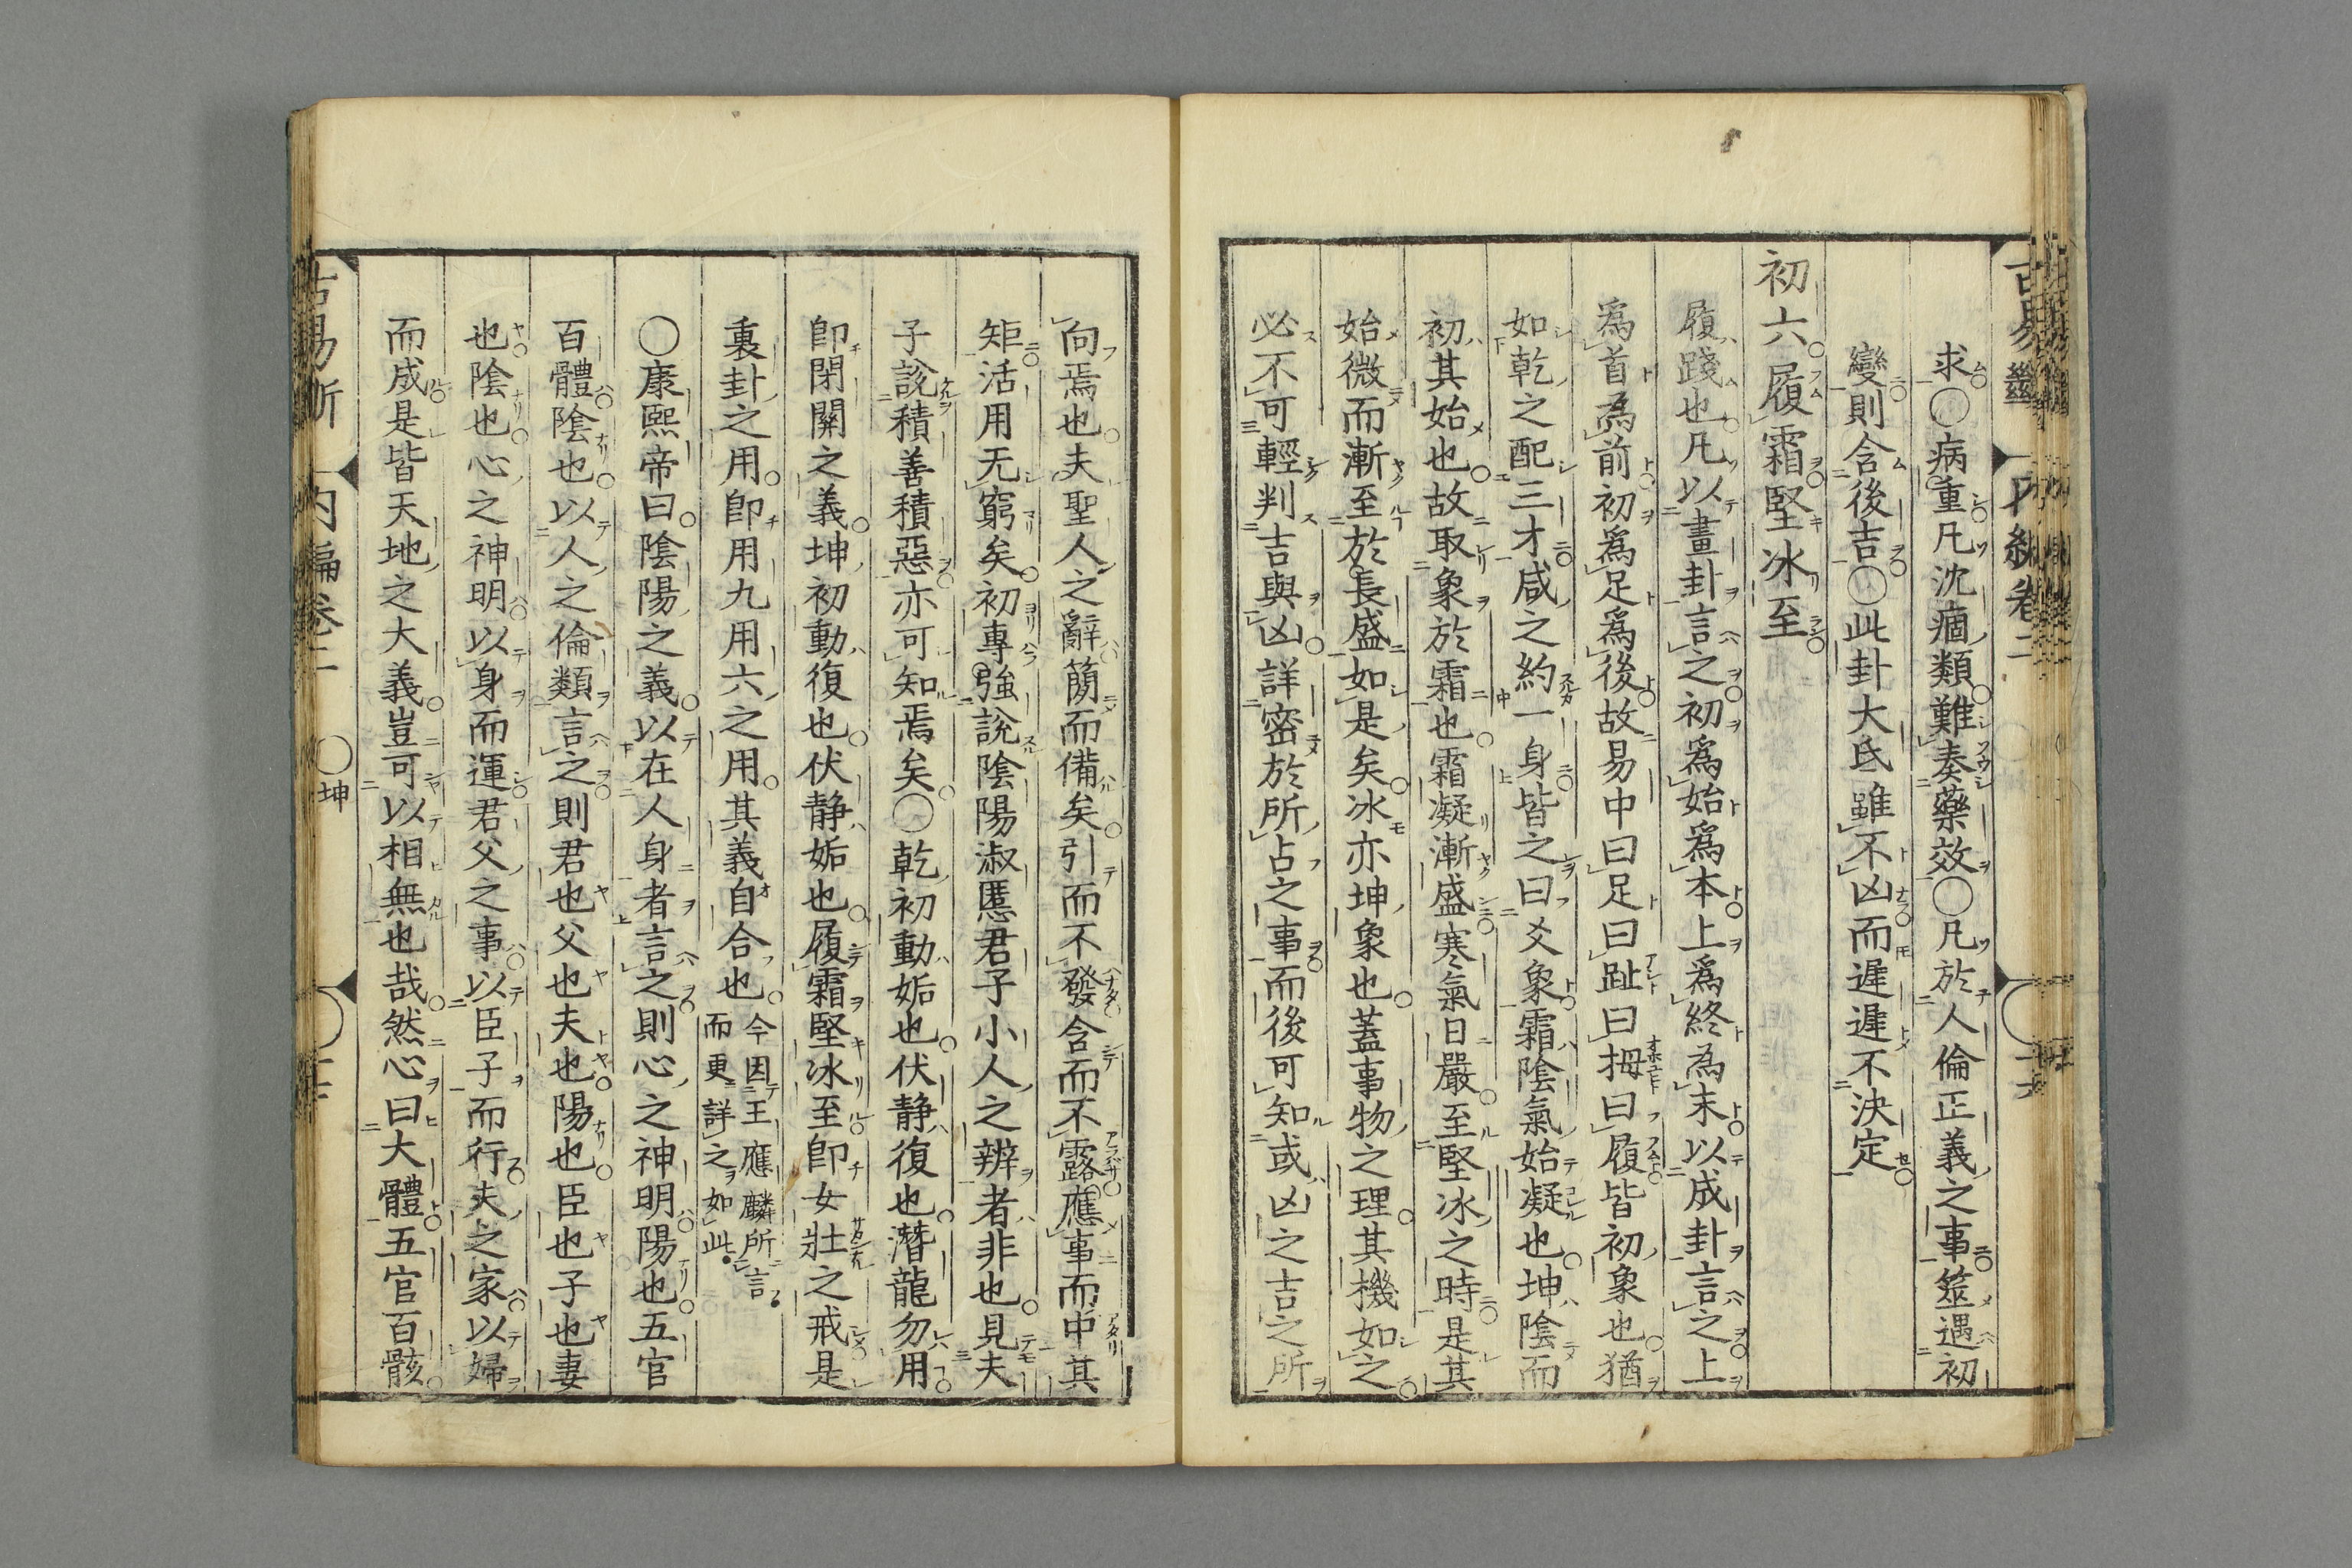 求○病重凡沈痼類難奏藥效○凡於人倫正義之事筮遇初
變則含後吉○此卦大氐雖不凶而遲遲不決定
初六履霜堅冰至
履踐也凡以畫卦言之初爲始爲本上爲終為末以成卦言之上
爲首為前初爲足爲後故易中曰足曰趾曰拇曰履皆初象也猶
如乾之配三才咸之約一身皆之曰爻象霜陰氣始凝也坤陰而
初其始也故取象於霜也霜凝漸盛寒氣日嚴至堅冰之時是其
始微而漸至於長盛如是矣冰亦坤象也蓋事物之理其機如之
必不可輕判吉與凶詳密於所占之事而後可知或凶之吉之所
向焉也夫聖人之辭簡而備矣引而不發含而不露應事而中其
矩活用无窮矣初專強說陰陽淑慝君子小人之辨者非也見夫
子說積善積惡亦可知焉矣○乾初動姤也伏静復也潛龍勿用
卽閉關之義坤初動復也伏静姤也履霜堅冰至卽女壯之戒是
裏卦之用卽用九用六之用其義自合也今因王應麟所言
而更詳之如此
○康熙帝曰陰陽之義以在人身者言之則心之神明陽也五官
百體陰也以人之倫類言之則君也父也夫也陽也臣也子也妻
也陰也心之神明以身而運君父之事以臣子而行夫之家以婦
而成是皆天地之大義豈可以相無也哉然心曰大體五官百骸
坤